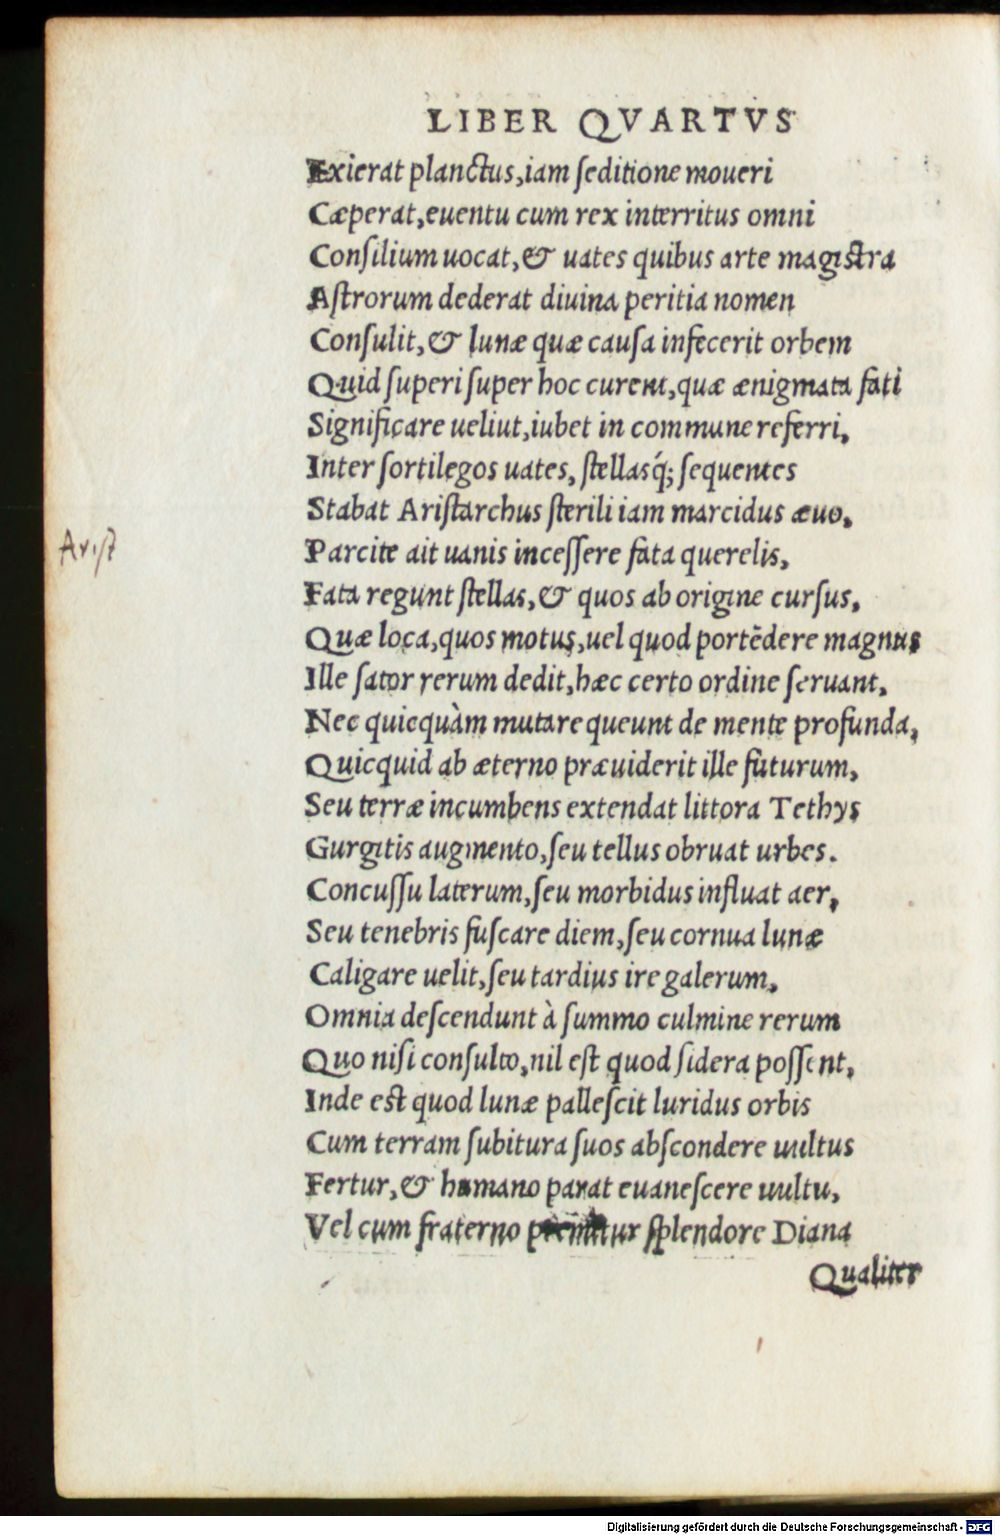 LIBER QVARTVS
Exierat planctus, iam ſeditione moueri
Cæperat, euentu cum rex interritus omni
Conſilium uocat, & uates quibus arte magiſtra
Aſtrorum dederat diuina peritia nomen
Conſulit, & lunæ quæ cauſa infecerit orbem
Quid ſuperi ſuper hoc curent, quæ ænigmata fati
Significare ueliut, iubet in commune referri,
Inter ſortilegos uates, ſtellasq́; ſequentes
Stabat Ariſtarchus ſterili iam marcidus æuo,
Arist
Parcite ait uanis inceſſere fata querelis,
Fata regunt ſtellas, & quos ab origine curſus,
Quæ loca, quos motus, uel quod portēdere magnus
Ille ſator rerum dedit, hæc certo ordine ſeruant,
Nec quicquàm mutare queunt de mente profunda,
Quicquid ab æterno præuiderit ille futurum,
Seu terræ incumbens extendat littora Tethys
Gurgitis augmento, ſeu tellus obruat urbes.
Concuſſu laterum, ſeu morbidus influat aer,
Seu tenebris fuſcare diem, ſeu cornua lunæ
Caligare uelit, ſeu tardius ire galerum,
Omnia deſcendunt à ſummo culmine rerum
Quo niſi conſulto, nil eſt quod ſidera poſſent,
Inde est quod lunæ palleſcit luridus orbis
Cum terram ſubitura ſuos abſcondere uultus
Fertur, & humano parat euaneſcere uultu,
Vel cum fraterno premitur ſplendore Diana
Qualiter
Digitalisierung gefördert durch die Deutsche Forschungsgemeinschaft - DFG